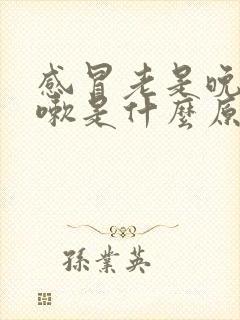 感冒老是晚
嗽是什麼原
孫業英